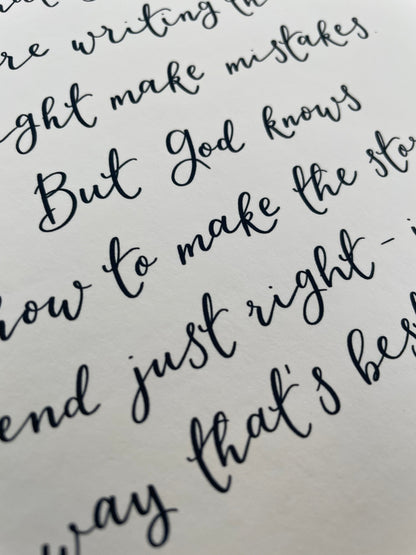 re writing th
ght make mistakes.
But God knows
how to make the sto
end just right -
way that's bes